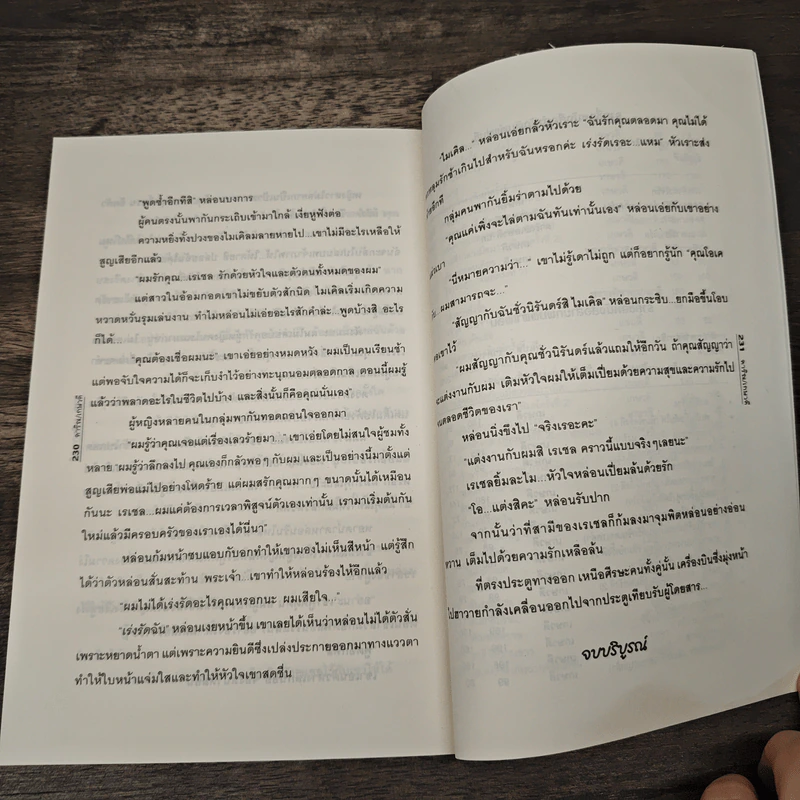 "พูดซ้ำอีกทีสิ" หล่อนบงการ
ผู้คนตรงนั้นพากันกระเถิบเข้ามาใกล้ เงี่ยหูฟังต่อ
ความหยิ่งทั้งปวงของไมเคิลมลายหายไป...เขาไม่มีอะไรเหลือให้
สูญเสียอีกแล้ว
"ผมรักคุณ...เรเซล รักด้วยหัวใจและตัวตนทั้งหมดของผม"
แต่สาวในอ้อมกอดเขาไม่ขยับตัวสักนิด ไมเคิลเริ่มเกิดความ
หวาดหวั่นรุมเล่นงาน ทำไมหล่อนไม่เอ่ยอะไรสักคำล่ะ...พูดบ้างสิ อะไร
ก็ได้...
"คุณต้องเชื่อผมนะ" เขาเอ่ยอย่างหมดหวัง "ผมเป็นคนเรียนช้า
แต่พอจับใจความได้ก็จะเก็บงำไว้อย่างทะนุถนอมตลอดกาล ตอนนี้ผมรู้
แล้วว่าพลาดอะไรในชีวิตไปบ้าง และสิ่งนั้นก็คือคุณนั่นเอง"
ผู้หญิงหลายคนในกลุ่มพากันทอดถอนใจออกมา
"ผมรู้ว่าคุณเจอแต่เรื่องเลวร้ายมา..." เขาเอ่ยโดยไม่สนใจผู้ชมทั้ง
หลาย "ผมรู้ว่าลึกลงไป คุณเองก็กลัวพอๆ กับผม และเป็นอย่างนี้มาตั้งแต่
สูญเสียพ่อแม่ไปอย่างโหดร้าย แต่ผมรักคุณมากๆ ขนาดนั้นได้เหมือน
กันนะ เรเซล...ผมแค่ต้องการเวลาพิสูจน์ตัวเองเท่านั้น เรามาเริ่มต้นกัน
ใหม่แล้วมีครอบครัวของเราเองได้นี่นา"
หล่อนก้มหน้าซบแอบกับอกทำให้เขามองไม่เห็นสีหน้า แต่รู้สึก
ได้ว่าตัวหล่อนสั่นสะท้าน พระเจ้า...เขาทำให้หล่อนร้องไห้อีกแล้ว
"ผมไม่ได้เร่งรัดอะไรคุณหรอกนะ ผมเสียใจ..."
"เร่งรัดฉัน" หล่อนเงยหน้าขึ้น เขาเลยได้เห็นว่าหล่อนไม่ได้ตัวสั่น
เพราะหยาดน้ำตา แต่เพราะความยินดีซึ่งเปล่งประกายออกมาทางแววตา
ทำให้ใบหน้าแจ่มใสและทำให้หัวใจเขาสดชื่น
230
"ไมเคิล..." หล่อนเอ่ยกลั้วหัวเราะ "ฉันรักคุณตลอดมา คุณไม่ได้
รักช้าเกินไปสำหรับฉันหรอกค่ะ เร่งรัดเรอะ...แหม" หัวเราะส่ง
อีกที
กลุ่มคนพากันยิ้มร่าตามไปด้วย
"คุณแค่เพิ่งจะไล่ตามฉันทันเท่านั้นเอง" หล่อนเอ่ยกับเขาอย่าง
"นี่หมายความว่า..." เขาไม่รู้เดาไม่ถูก แต่ก็อยากรู้นัก "คุณโอเค
ผมสามารถจะ..."
"สัญญากับฉันชั่วนิรันดร์สิ ไมเคิล" หล่อนกระซิบ...ยกมือขึ้นโอบ
เขาไว้
"ผมสัญญากับคุณชั่วนิรันดร์แล้วแถมให้อีกวัน ถ้าคุณสัญญาว่า
จะแต่งงานกับผม เติมหัวใจผมให้เต็มเปี่ยมด้วยความสุขและความรักไป
ตลอดชีวิตของเรา"
หล่อนนิ่งขึงไป "จริงเรอะคะ"
"แต่งงานกับผมสิ เรเซล คราวนี้แบบจริงๆเลยนะ"
เรเซลยิ้มละไม...หัวใจหล่อนเปี่ยมล้นด้วยรัก
"โอ...แต่งสิคะ" หล่อนรับปาก
จากนั้นว่าที่สามีของเรเซลก็ก้มลงมาจุมพิตหล่อนอย่างอ่อน
หวาน เต็มไปด้วยความรักเหลือล้น
ที่ตรงประตูทางออก เหนือศีรษะคนทั้งคู่นั้น เครื่องบินซึ่งมุ่งหน้า
ไปฮาวายกำลังเคลื่อนออกไปจากประตูเทียบรับผู้โดยสาร...
จบบริบูรณ์
231